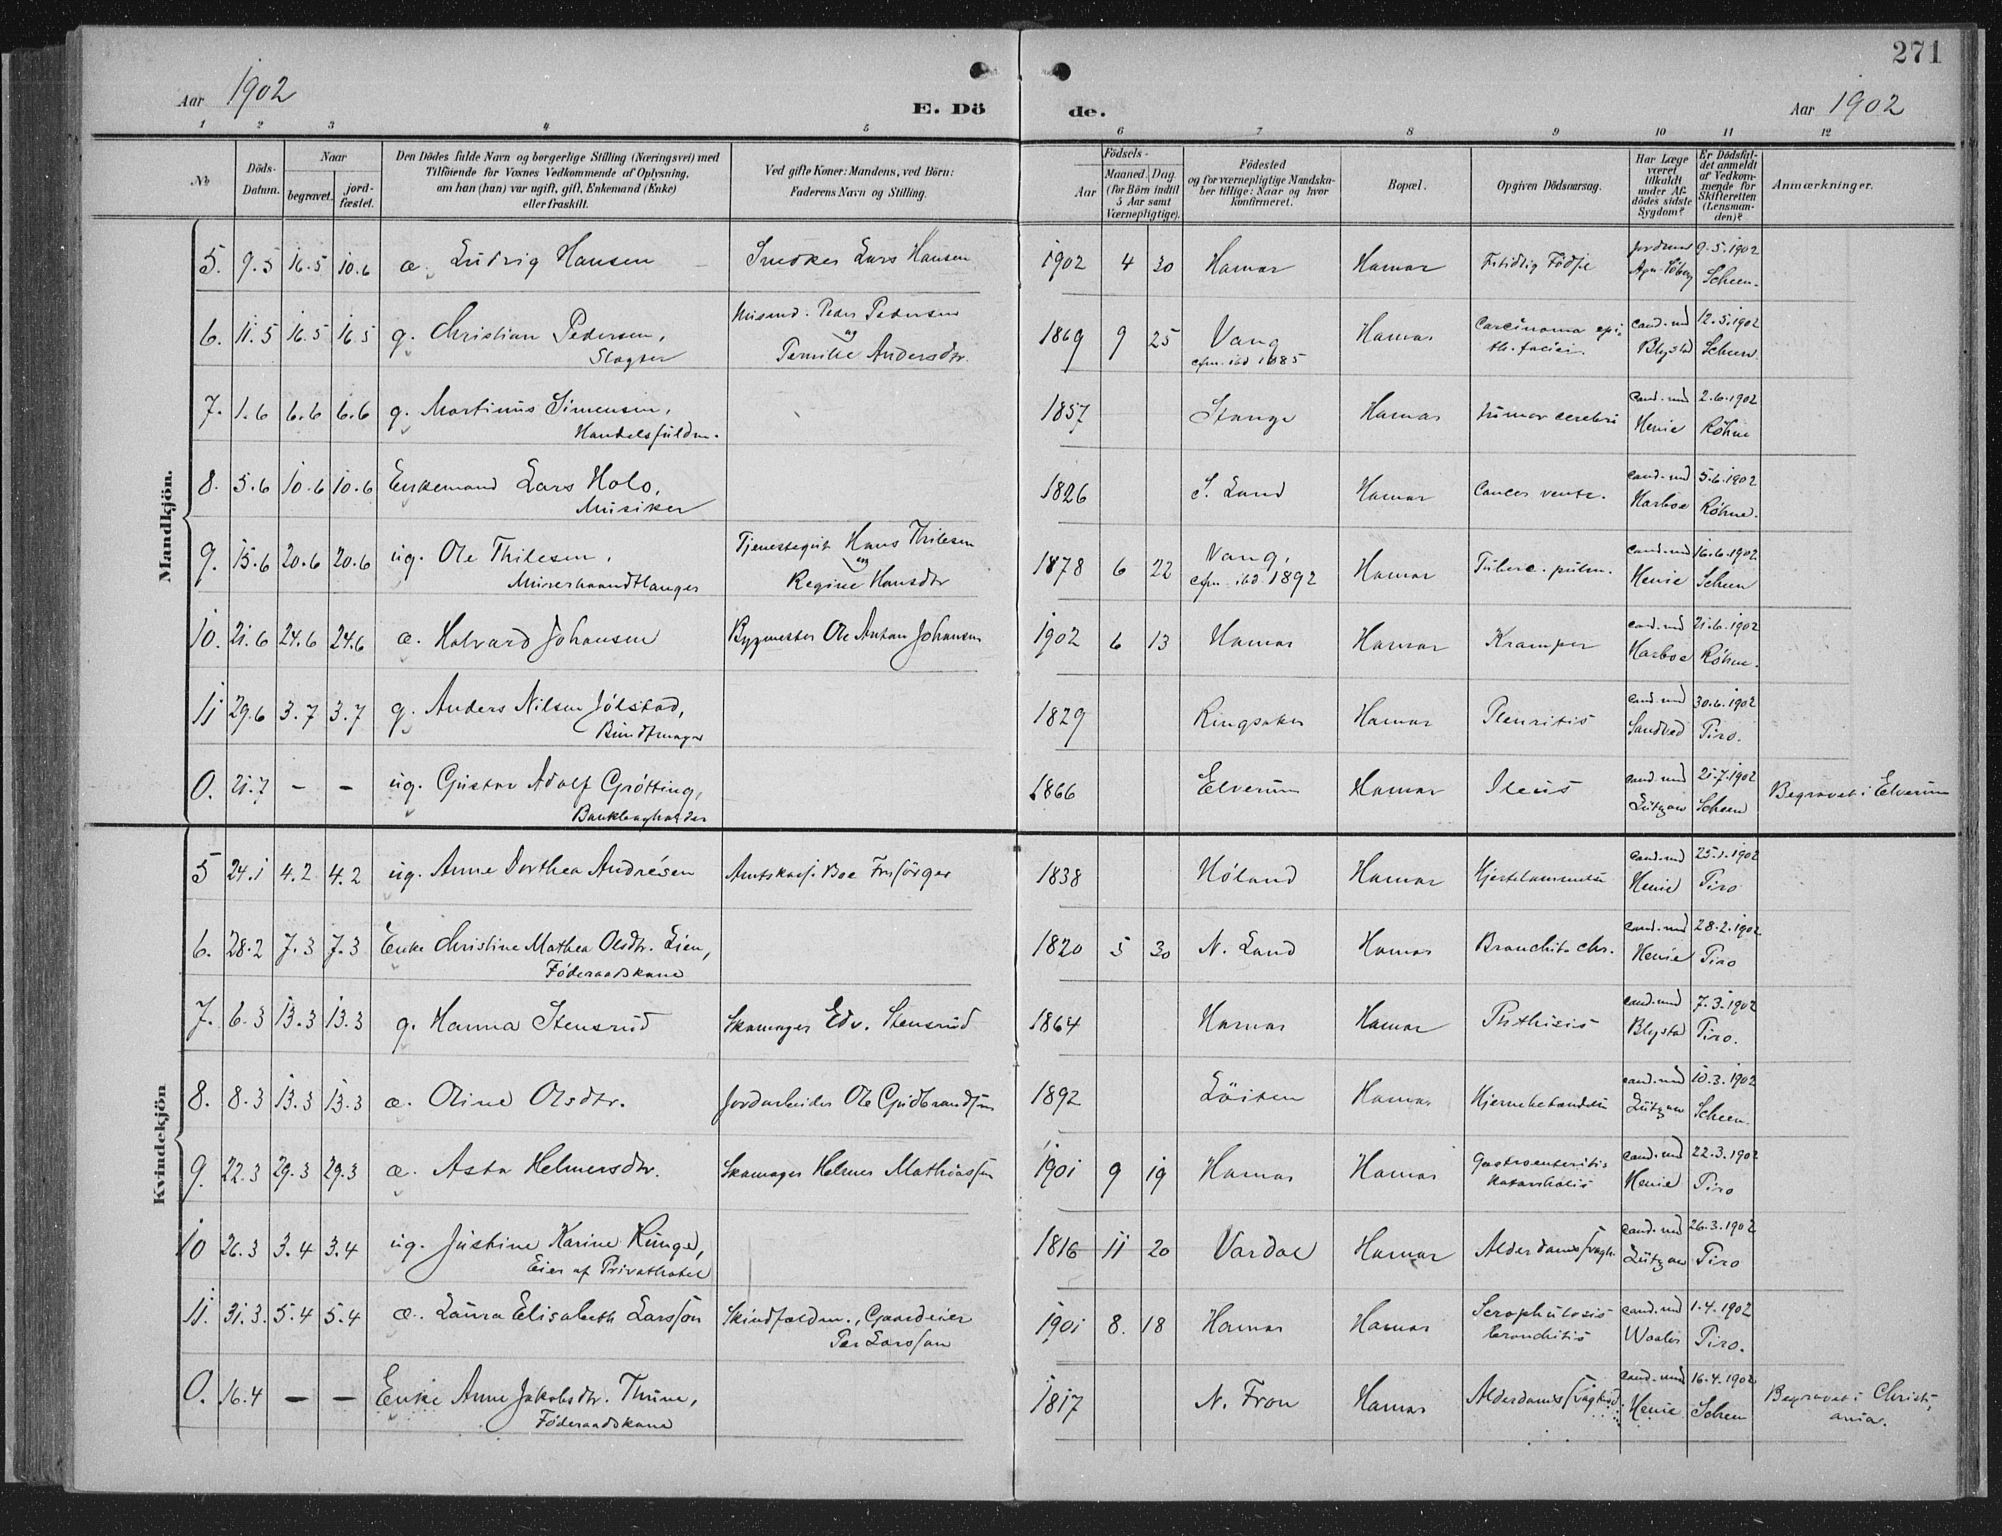 271
Aar 1902
E. Dö
de.
Aar 1902
1 2 3 4 5 6 7 8 9 10 11 12
No
Döds-Datum.
Naar
begravet.
jord-fæstet.
Den Dödes fulde Navn og borgerlige Stilling (Næringsvei) med
Tilföiende for Voxnes Vedkommende af Oplysning,
om han (hun) var ugift, gift, Enkemand (Enke)
eller fraskilt.
Ved gifte Koner: Mandens, ved Börn:
Faderens Navn og Stilling.
Födsels-
Aar
Maaned. Dag
(for Börn indtil
5 Aar samt
Værnepligtige).
Födested
og for værnepligtige Mandska-
ber tillige: Naar og hvor
konfirmeret.
Bopæl.
Opgiven Dödsaarsag.
Har Læge
været
tilkaldt
under Af-
dödes sidste
Sygdom?
Er Dödsfal-
det anmeldt
af Vedkom-
mende for
Skifteretten
(Lensman-
den)?
Anmærkninger.
Mandkjön.
5. 9.5 16.5 10.6 æ. Ludvig Hansen Smedker Lars Hansen 1902 4 30 Hamar Hamar Fødsel Jordmor 9.5.1902
Scheen.
6. 11.5 16.5 16.5 g. Christian Pedersen, Peder Pedersen 1869 9 25 Vang Hamar Carcinoma epi- cand. med 12.5.1902
Slagter og Andersdtr. cfm. ibd 1885 th. faciei. Blystad Scheen.
7. 1.6 6.6 6.6 g. Martinus Simensen, 1857 Stange Hamar tumor cerebri cand. med 2.6.1902
Handelsfuldm. Henie Röhne
8. 5.6 10.6 10.6 Enkemand Lars Holo, 1826 S. Land Hamar Cancer ventr. cand. med 5.6.1902
Musiker Harboe Röhne.
9. 15.6 20.6 20.6 ug. Ole Thilesen, Tjenestegut Hans Thilesen 1878 6 22 Vang, Hamar Tuberc. pulm. cand. med 16.6.1902
Murerhaandtlanger og Regine Hansdtr cfm. ibd. 1892 Henie Scheen
10. 21.6 24.6 24.6 æ. Halvard Johansen Bygmester Ole Anton Johansen 1902 6 13 Hamar Hamar Kramper cand. med 21.6.1902
Harboe Röhne.
11 29.6 3.7 3.7 g. Anders Nilsen Jölstad, 1829 Ringsaker Hamar Pleuritis cand. med 30.6.1902
Bundtmager Sandved Tiro.
0. 21.7 – – ug. Gustav Adolf Grötting, 1866 Elverum Hamar Ileus cand. med 21.7.1902 Begravet i Elverum
Lützow Scheen
Kvindekjön
5 24.1 4.2 4.2 ug. Anne Dorthea Andresen Amtskasf. Boe Forsörger 1838 Höland Hamar Hjertelammelse cand. med 25.1.1902
Henie Tiro
6. 28.2 7.3 7.3 Enke Christine Mathea Olsdtr. Lien, 1820 5 30 N. Land Hamar Bronchitis chr. cand. med 28.2.1902
Föderaadskone Henie Tiro
7. 6.3 13.3 13.3 g. Hanna Stensrud Skomager Edv. Stensrud 1864 Hamar Hamar Phthisis cand. med 7.3.1902
Blystad Tiro.
8. 8.3 13.3 13.3 æ. Oline Olsdtr. Jordarbeider Ole Gudbrandsen 1892 Löiten Hamar Hjernebetændelse cand. med 10.3.1902
Lützow Scheen.
9. 22.3 29.3 29.3 æ. Asta Helmersdtr. Skomager Helmer Mathiassen 1901 9 19 Hamar Hamar Gastroenteritis cand. med 22.3.1902
katarrhalis Henie Tiro
10 26.3 3.4 3.4 ug. Justine Karine Runge, 1816 11 20 Vardal Hamar Alderdomssvagh. cand. med 26.3.1902
Eier af Privathotel Lützow Tiro
11. 31.3. 5.4 5.4 æ. Laura Elisabeth Larsson Skindfældm., Gaardeier 1901 8. 18 Hamar Hamar Scrophulosis cand. med 1.4.1902
Per Larsson bronchitis Waaler Tiro.
0. 16.4 – – Enke Anne Jakobsdtr. Thune, 1817 N. Fron Hamar Alderdomssvaghed cand. med 16.4.1902 Begravet i Christi-
Föderaadskone Henie Scheen ania.